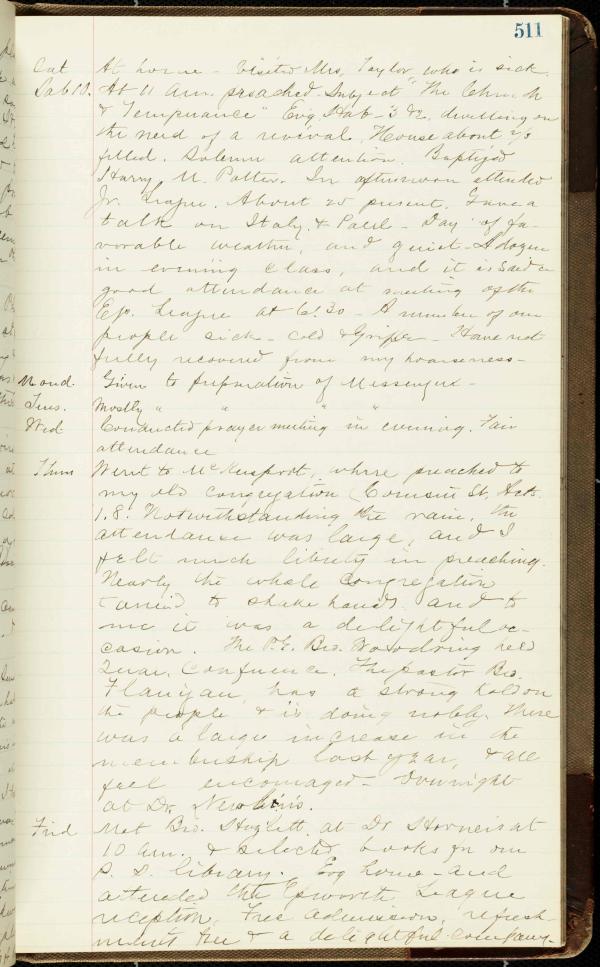 511
Sat At home - Visited Mrs. Taylor, who is sick.
Sab 10. At 11 am. preached Subject "The Church
& Temperance" Evg Hab - 3 & 2. dwelling on
the need of a revival. House about 2/3
filled. Solemn attention. Baptized
Harry M. Potter. In afternoon attended
Jr. League. About 20 present. Gave a
talk on Italy & Paul - Day of fa-
vorable weather, and quiet - A dozen
in evening class, and it is said a
good attendance at meeting of the
Ep. League at 6:30 - A number of our
people sick - cold & Grippe - Have not
fully recovered from my hoarseness -
Mond. Given to preparation of Messenger -
Tues. Mostly " " " "
Wed Conducted prayer meeting in evening. Fair
attendance
Thurs Went to McKeesport, where preached to
my old congregation, Cousin St, Acts
1.8. Notwithstanding the rain, the
attendance was large, and I
felt much liberty in preaching.
Nearly the whole congregation
tarried to shake hands and to
me it was a delightful oc-
casion. The P.E. Bro. Woodring held
Quar. Conference. The pastor Bro.
Flanigan has a strong hold on
the people & is doing nobly. There
was a large increase in the
membership last year, & all
feel encouraged - Overnight
at Dr.
Frid Met Bro. Hazlett at Dr Horner's at
10 am. & selected books for our
S. S. library. Evg home - and
attended the Epworth League
reception, Free admission, refresh-
ments free & a delightful company -